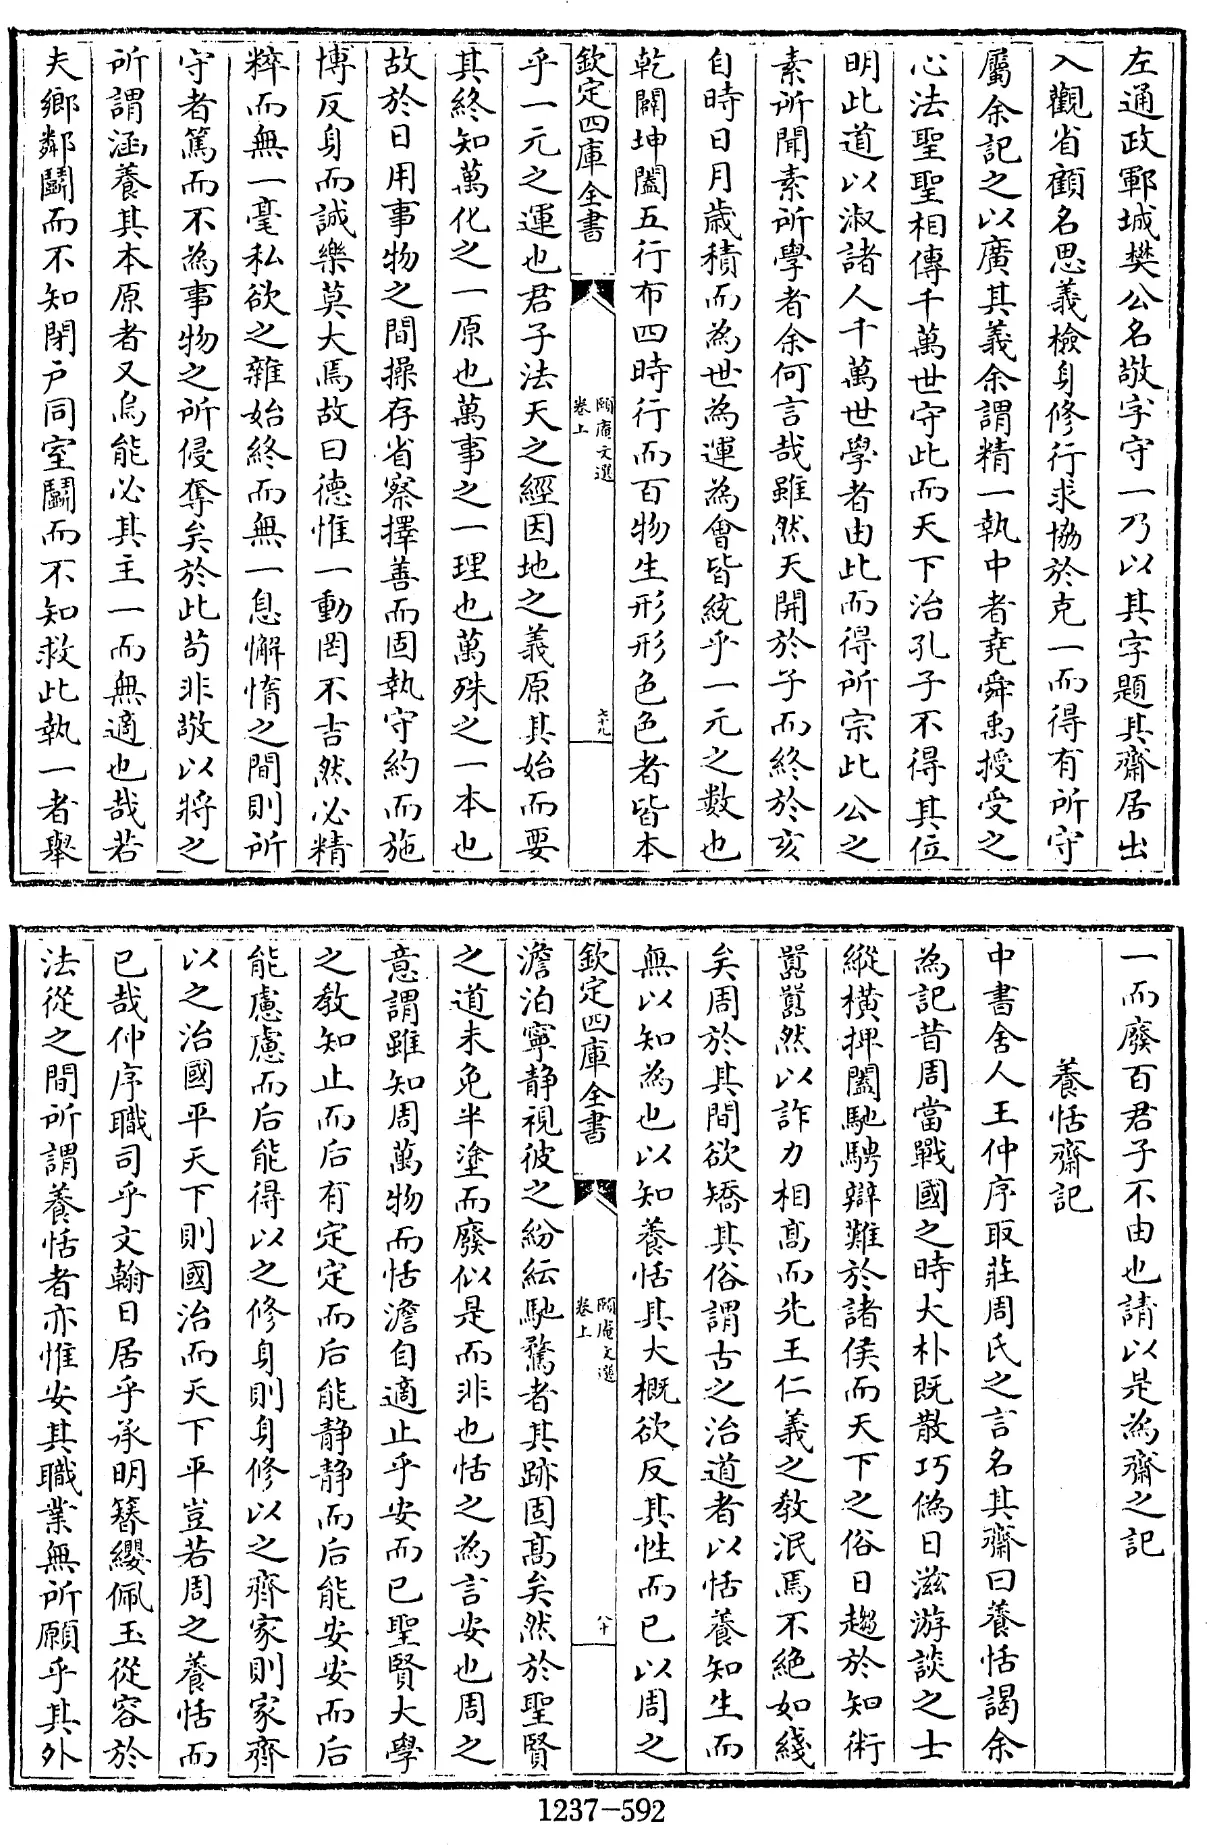 左通政鄆城樊公名敬字守一乃以其字題其齋居出
入觀省顧名思義檢身修行求協於克一而得有所守
屬余記之以廣其義余謂精一執中者堯舜禹授受之
心法聖聖相傳千萬世守此而天下治孔子不得其位
明此道以淑諸人千萬世學者由此而得所宗此公之
素所聞素所學者余何言哉雖然天開於子而終於亥
自時日月歲積而為世為運為會皆統乎一元之數也
乾闢坤闔五行布四時行而百物生形形色色者皆本
欽定四庫全書
頤庵文選
卷上
七十九
乎一元之運也君子法天之經因地之義原其始而要
其終知萬化之一原也萬事之一理也萬殊之一本也
故於日用事物之間操存省察擇善而固執守約而施
博反身而誠樂莫大焉故曰德惟一動罔不吉然必精
粹而無一毫私欲之雜始終而無一息懈惰之間則所
守者篤而不為事物之所侵奪矣於此苟非敬以將之
所謂涵養其本原者又烏能必其主一而無適也哉若
夫鄉鄰鬭而不知閉户同室鬭而不知救此執一者舉
一而廢百君子不由也請以是為齋之記
養恬齋記
中書舍人王仲序取莊周氏之言名其齋曰養恬謁余
為記昔周當戰國之時大朴既散巧偽日滋游談之士
縱橫捭闔馳騁辯難於諸侯而天下之俗日趨於知術
囂囂然以詐力相高而先王仁義之教泯焉不絶如綫
矣周於其間欲矯其俗謂古之治道者以恬養知生而
無以知為也以知養恬其大概欲反其性而已以周之
欽定四庫全書
頤庵文選
卷上
八十
澹泊寧静視彼之紛紜馳騖者其跡固高矣然於聖賢
之道未免半塗而廢似是而非也恬之為言安也周之
意謂雖知周萬物而恬澹自適止乎安而已聖賢大學
之教知止而后有定定而后能静静而后能安安而后
能慮慮而后能得以之修身則身修以之齊家則家齊
以之治國平天下則國治而天下平豈若周之養恬而
已哉仲序職司乎文翰日居乎承明簪纓佩玉從容於
法從之間所謂養恬者亦惟安其職業無所願乎其外
1237-592